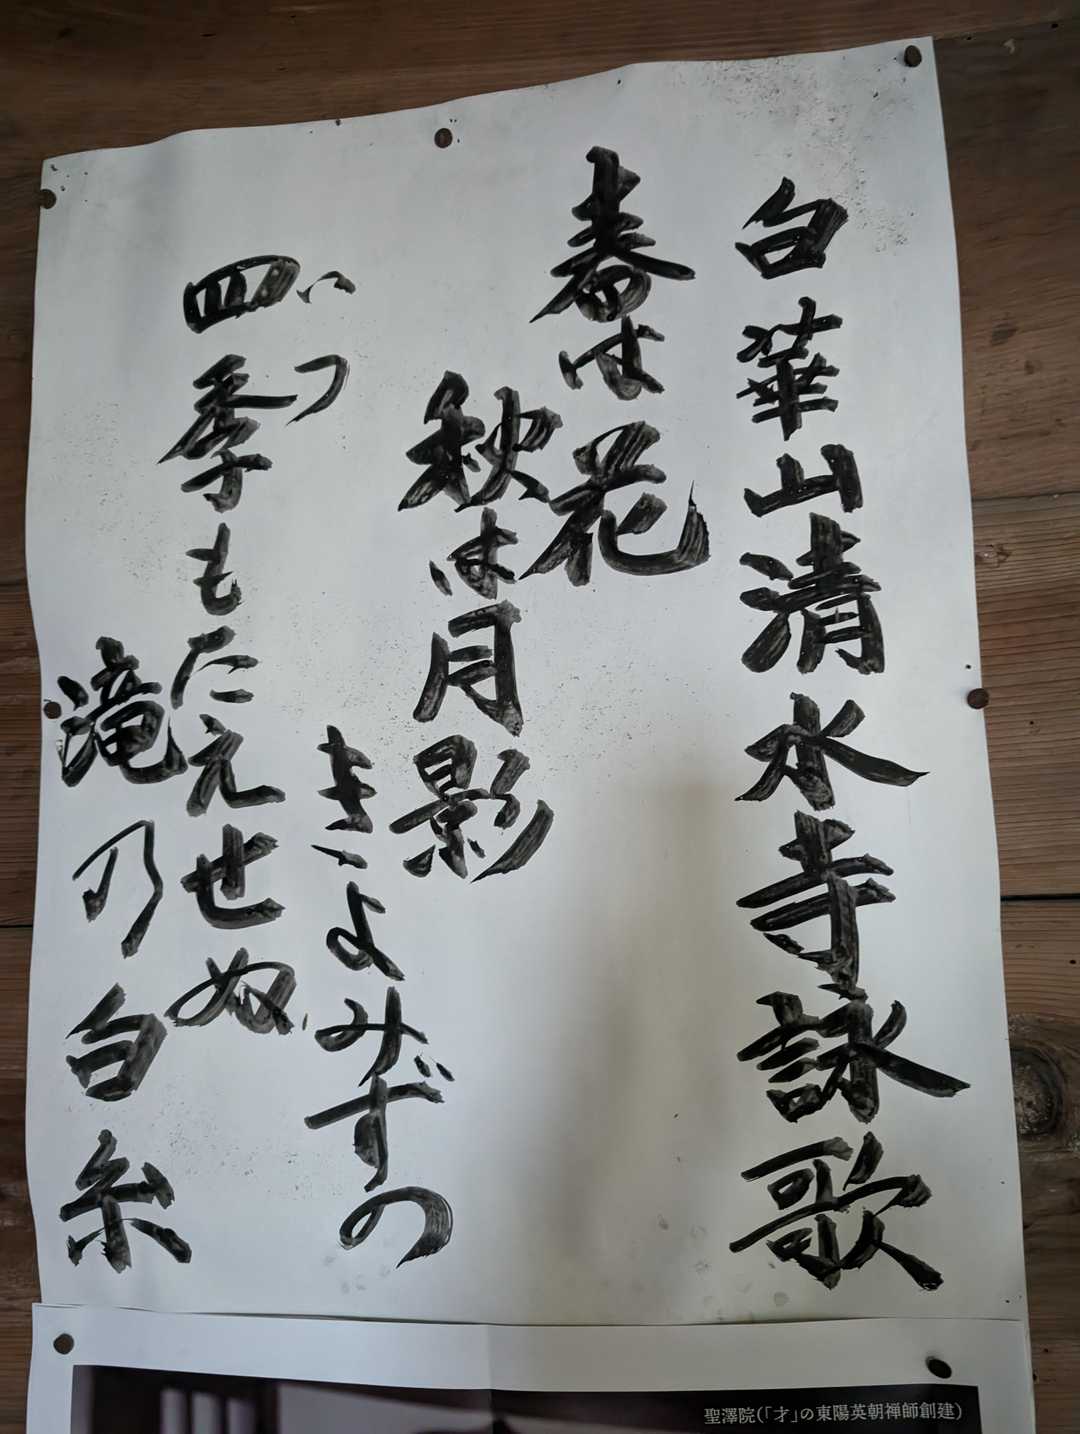 白華山清水寺詠歌
春は花
秋は月影
きよみずの
いつ
四季もたえせぬ
滝乃白糸
聖澤院(「才」の東陽英朝禅師創建)